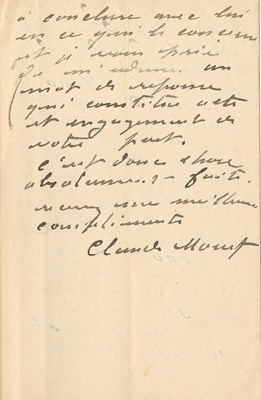 à conclure avec lui
en ce qui le concerne
et je vous prie
de m'adresser un
mot de réponse
qui constitue acte
et engagement de
votre part.
C'est donc chose
absolument faite.
recevez mes meilleurs
compliments
Claude Monet